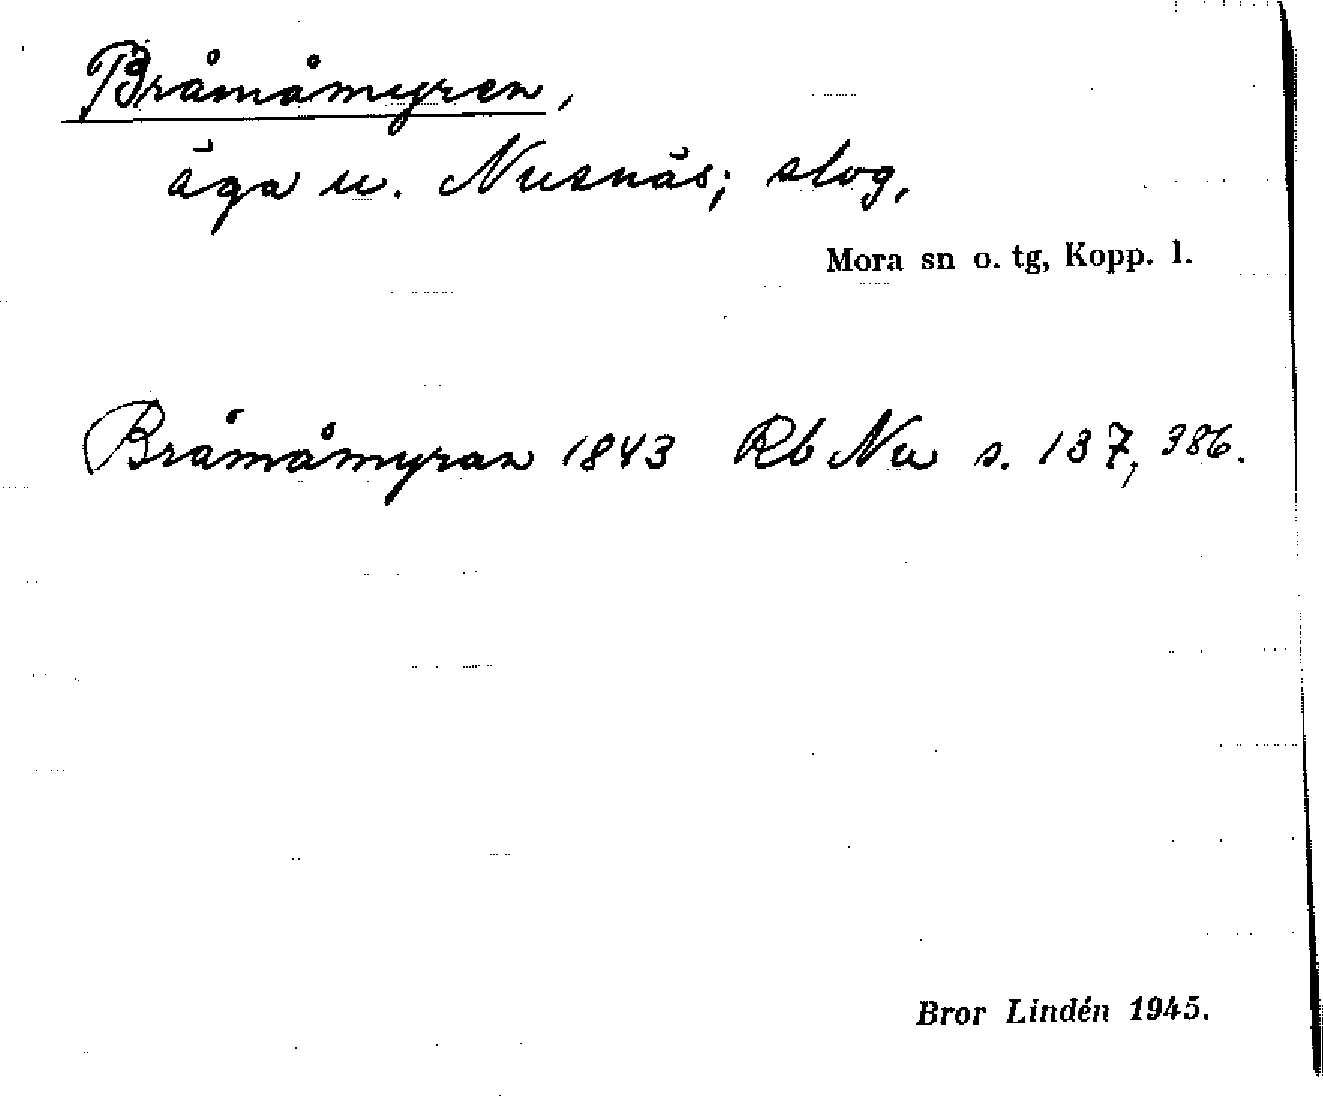 Bråmåmyren,
äga u. Nusnäs; slog,
Mora sn o. tg, Kopp. l.
Bråmåmyran 1843 Rb Nu s. 137, 386.
Bror Lindén 1945.